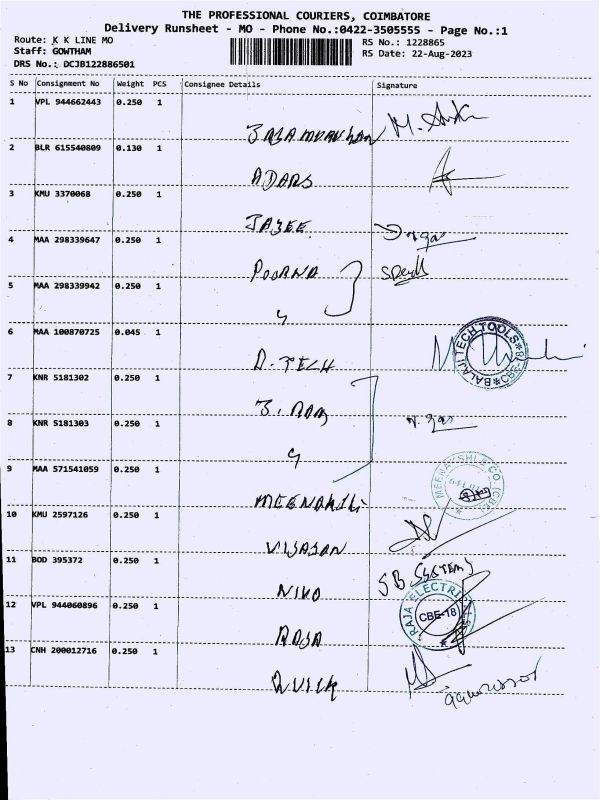 THE PROFESSIONAL COURIERS, COIMBATORE
Delivery Runsheet - MO - Phone No.:0422-3505555 - Page No.:1
Route: K K LINE MO
RS No.: 1228865
Staff: GOWTHAM
RS Date: 22-Aug-2023
DRS No.: DCJB122886501
S No Consignment No Weight PCS Consignee Details Signature
1 VPL 944662443 0.250 1
2 BLR 615540809 0.130 1
ADARS
3 KMU 3370068 0.250 1
JAYEE
4 MAA 298339647 0.250 1
POORNA
5 MAA 298339942 0.250 1
6 MAA 100870725 0.045 1
D. TECH
BALAJI TECH TOOLS
7 KNR 5181302 0.250 1
8 KNR 5181303 0.250 1
9 MAA 571541059 0.250 1
MEENAKSHI & CO. (CBE)
10 KMU 2597126 0.250 1
VIJAYAN
11 BOD 395372 0.250 1
SB SYSTEMS
NIKO
12 VPL 944060896 0.250 1
RAJA ELECTRICALS
CBE-18
RAJA
13 CNH 200012716 0.250 1
QUICK